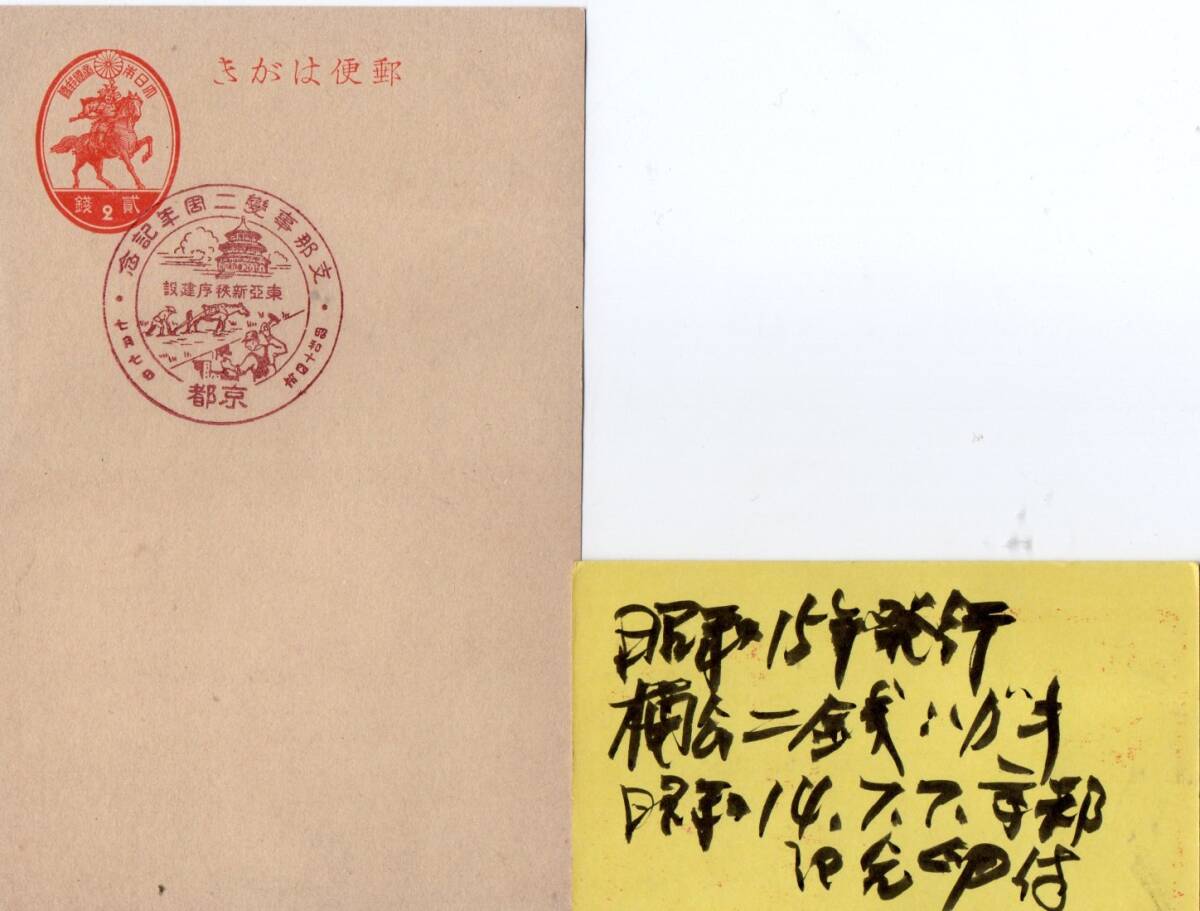 郵便はがき
大日本帝國郵便
貳2錢
支那事變二周年記念
東亞新秩序建設
昭和十四年
七月七日
京都
昭和15年発行
楠公二銭ハガキ
昭和14.7.7.京都
記念印付